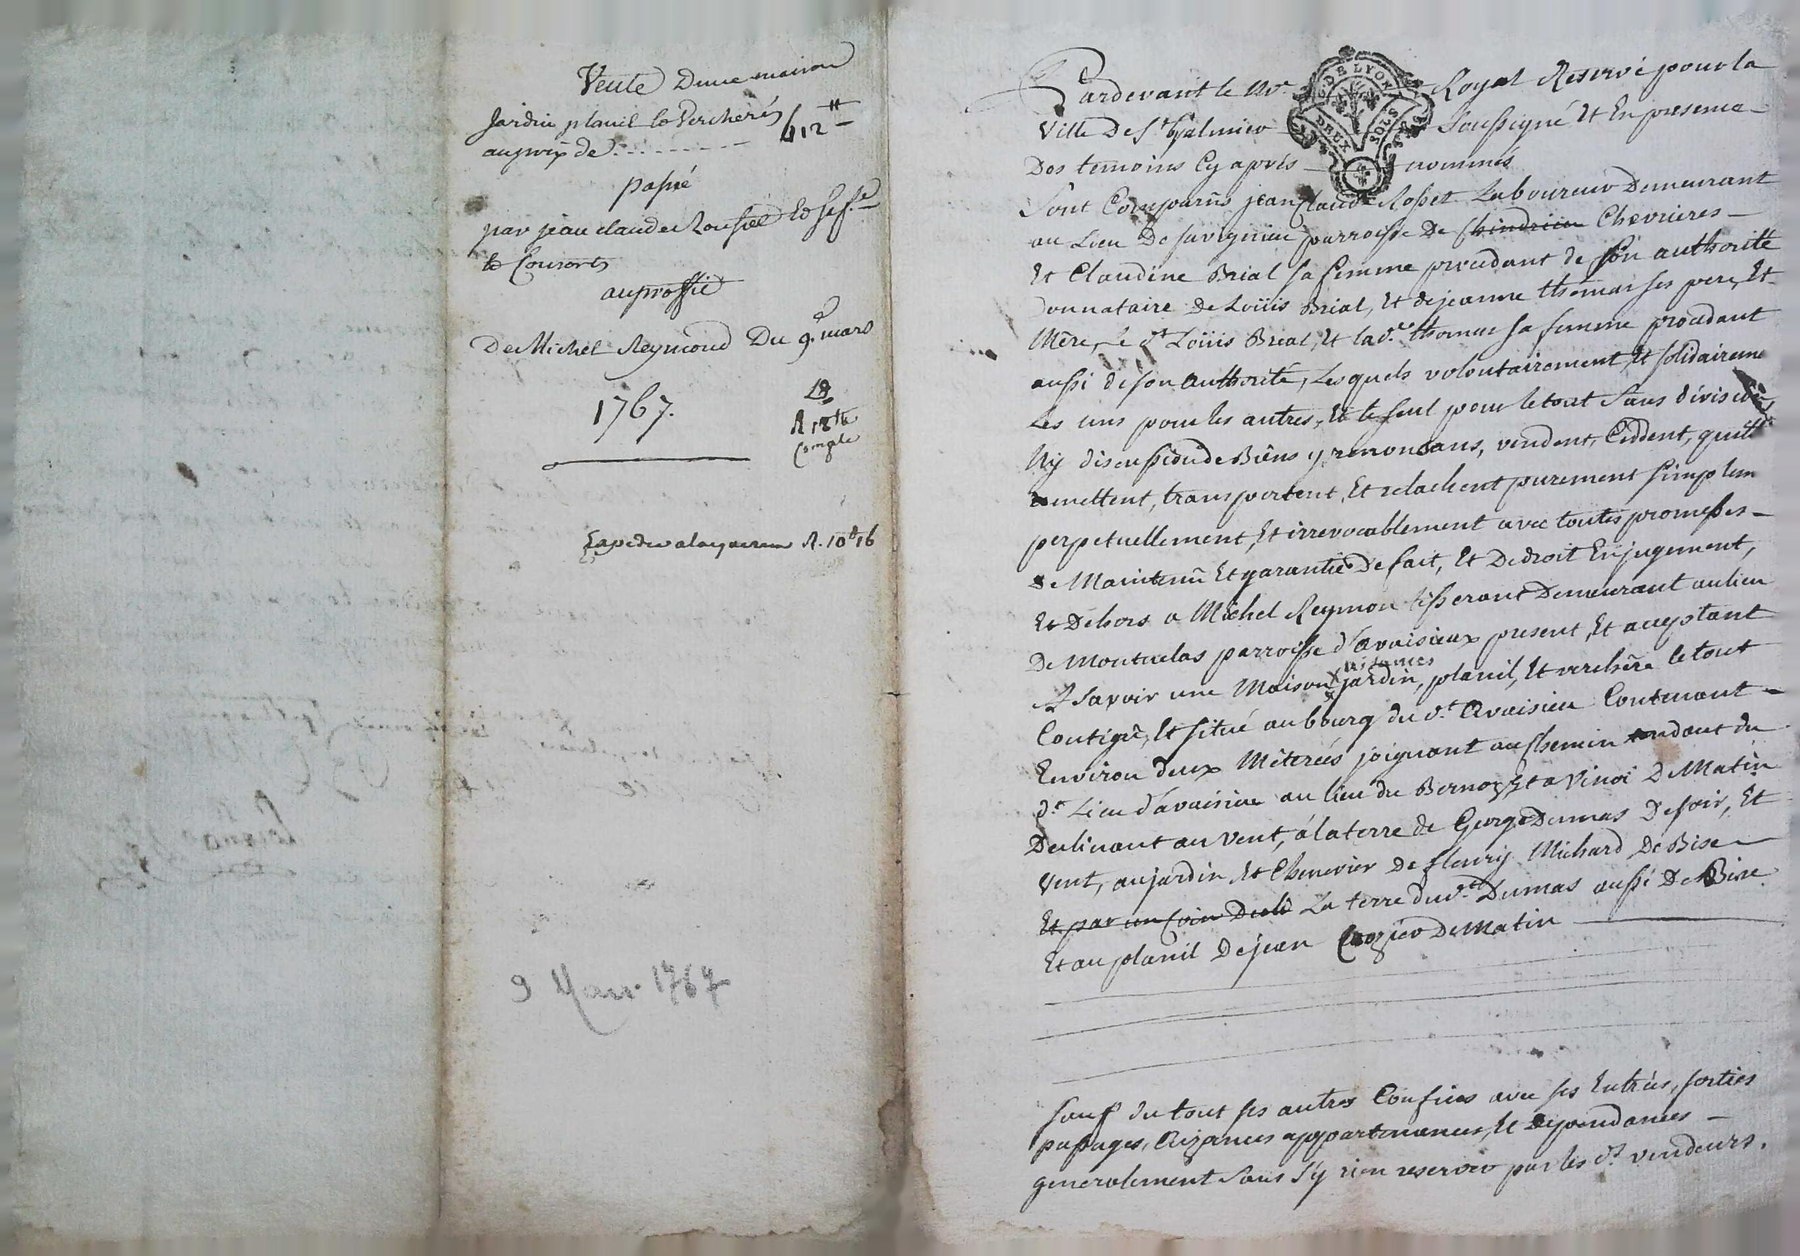 Vente Dune maison
Jardin planil & Verchere
au prix de . . . . . . . . 612 ₶
passé
par jean claude Rousset Et sa fe
& Consorts
au proffit
De Michel Reymond Du 9e mars
1767.
R 12 ₶
Compte
Expedie a lacquereur R. 10 ₶ 16
9 Mars 1767
G. DE LYON
DEUX SOLS
Pardevant le Nre Royal Reservé pour la
Ville De St Galmier Soussigné Et En presence
Des temoins Cy après nommés
Sont Comparus jean Claude Rosset Laboureur Demeurant
au Lieu De savignieu parroisse De Chevrieres
Et Claudine Brial sa femme procedant de son authorité
Donnataire De Loüis Brial, Et de jeanne thomas ses pere, Et
Mere, le dt Loüis Brial, Et lade thomas sa femme procedant
aussi de son authorité, Lesquels volontairement, Et solidaireme
Les uns pour les autres, Et le seul pour le tout sans division
Ny discussion de Biens y renonçans, vendent, Ceddent, quitt
remettent, transportent, Et relachent purement simplem
perpetuellement, Et irrevocablement avec toutes promesses
De Maintenu Et garantie De fait, Et De droit En jugement,
Et Dehors a Michel Reymon tisserant Demeurant au lieu
De Montuclas parroisse d'avaisieux present, Et acceptant
A Savoir une Maison, aisances jardin, planil, Et verchere le tout
Contigu, Et situé au bourg du dt Avaisieu Contenant
Environ deux Méterées joignant au Chemin tendant du
dt Lieu d'avaisieu au lieu du Bernay Et a Vinoi De Matin
Declinant au vent, a la terre de George Dumas De soir, Et
Vent, au jardin Et Chenevier De fleury Michard De Bise
Et par un Coin De la terre du dt Dumas aussi De Bise
Et au planil De jean Crozier De Matin
Sauf du tout ses autres Confins avec ses Entrées, sorties
passages, Aizances appartenances, Et Dependances
generalement sans s'y rien reserver par les dts vendeurs.